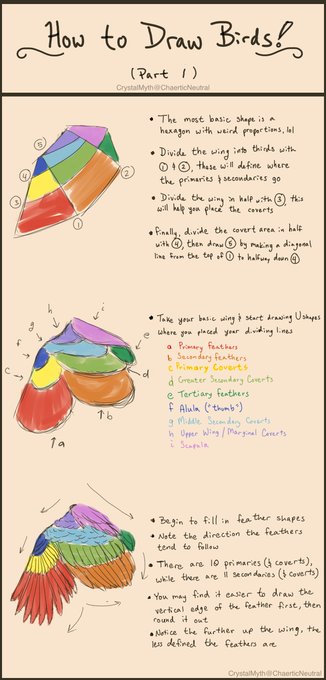 How to Draw Birds!
(Part 1)
CrystalMyth@ChaerticNeutral
• The most basic shape is a
hexagon with weird proportions, lol
• Divide the wing into thirds with
① & ②, these will define where
the primaries & secondaries go
• Divide the wing in half with ③, this
will help you place the coverts
• Finally, divide the covert area in half
with ④, then draw ⑤ by making a diagonal
line from the top of ① to halfway down ④
⑤
④
②
③
①
• Take your basic wing & start drawing U shapes
where you placed your dividing lines
a Primary Feathers
b Secondary Feathers
c Primary Coverts
d Greater Secondary Coverts
e Tertiary Feathers
f Alula ("thumb")
g Middle Secondary Coverts
h Upper Wing / Marginal Coverts
i Scapula
i
h
g
f
e
c
d
b
a
• Begin to fill in feather shapes
• Note the direction the feathers
tend to follow
• There are 10 primaries (& coverts),
while there are 11 secondaries (& coverts)
• You may find it easier to draw the
vertical edge of the feather first, then
round it out
• Notice the further up the wing, the
less defined the feathers are
CrystalMyth@ChaerticNeutral